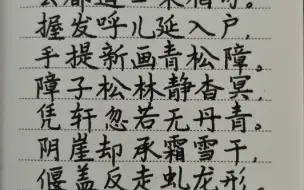 握发呼儿延入户,
手提新画青松障。
障子松林静杳冥,
凭轩忽若无丹青。
阴崖却承霜雪干,
偃盖反走虬龙形。